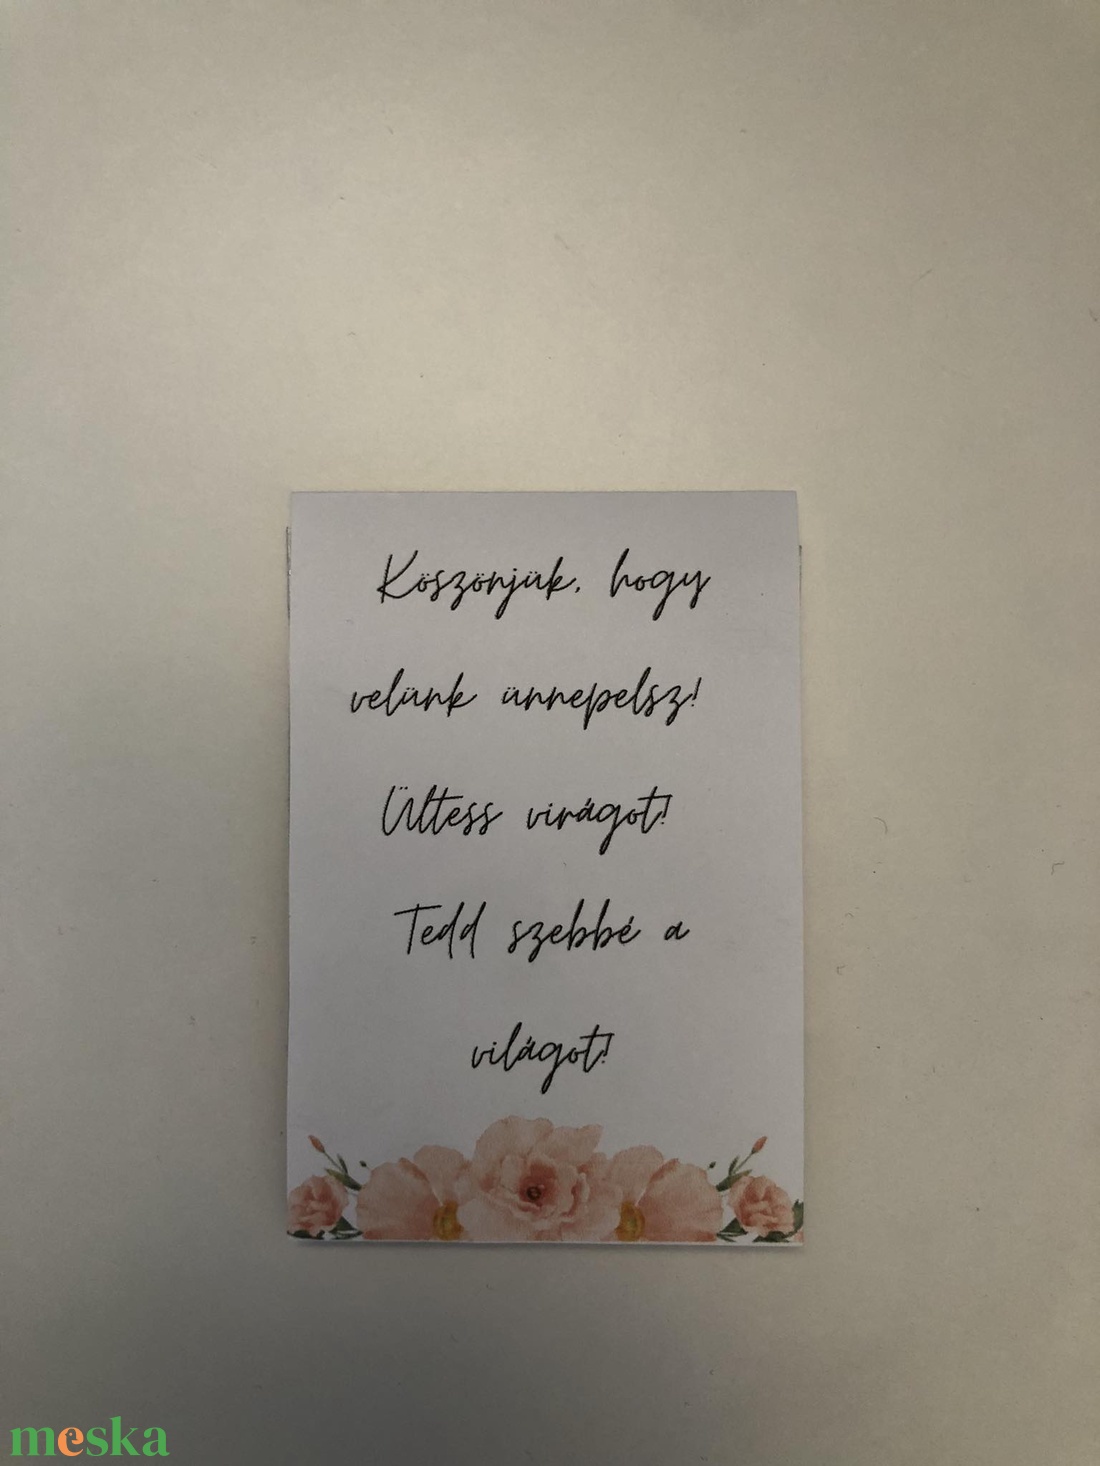 Köszönjük, hogy
velünk ünnepelsz!
Ültess virágot!
Tedd szebbé a
világot!
meska